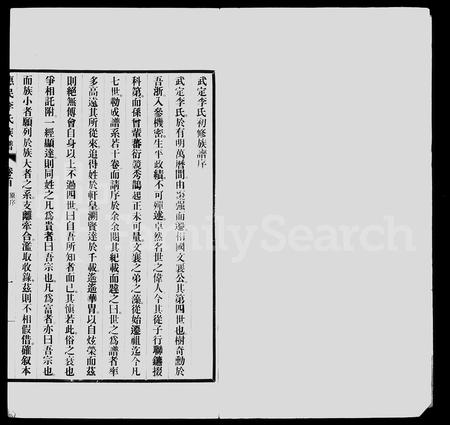 武定李氏初修族譜序
武定李氏於有明萬曆間由棗強而遷相國文襄公其第四世也樹奇勳於
吾浙入參機密生平政績不可殫述卓然名世之偉人今其從子行聯鑣掇
科第而孫曾輩蕃衍競秀鵲起正未可量文襄之弟之藻從始遷祖迄今凡
七世勒成譜系若干卷而請序於余余閱其紀載而韙之曰世之為譜者率
多高遠其所從來追得姓於軒皇溯賢達於千載遙遙華胄以自炫榮而茲
則絕無傅會自身以上不過四世曰自吾所知者而已其慎若此俗之衰也
爭相託附一經顯達則同姓之凡為貴者曰吾宗也凡為富者亦曰吾宗也
而族小者願列於族大者之系支離牽合濫取收錄茲則不相假借確叙本
惠民李氏族譜 卷首 原序 一
FamilySearch